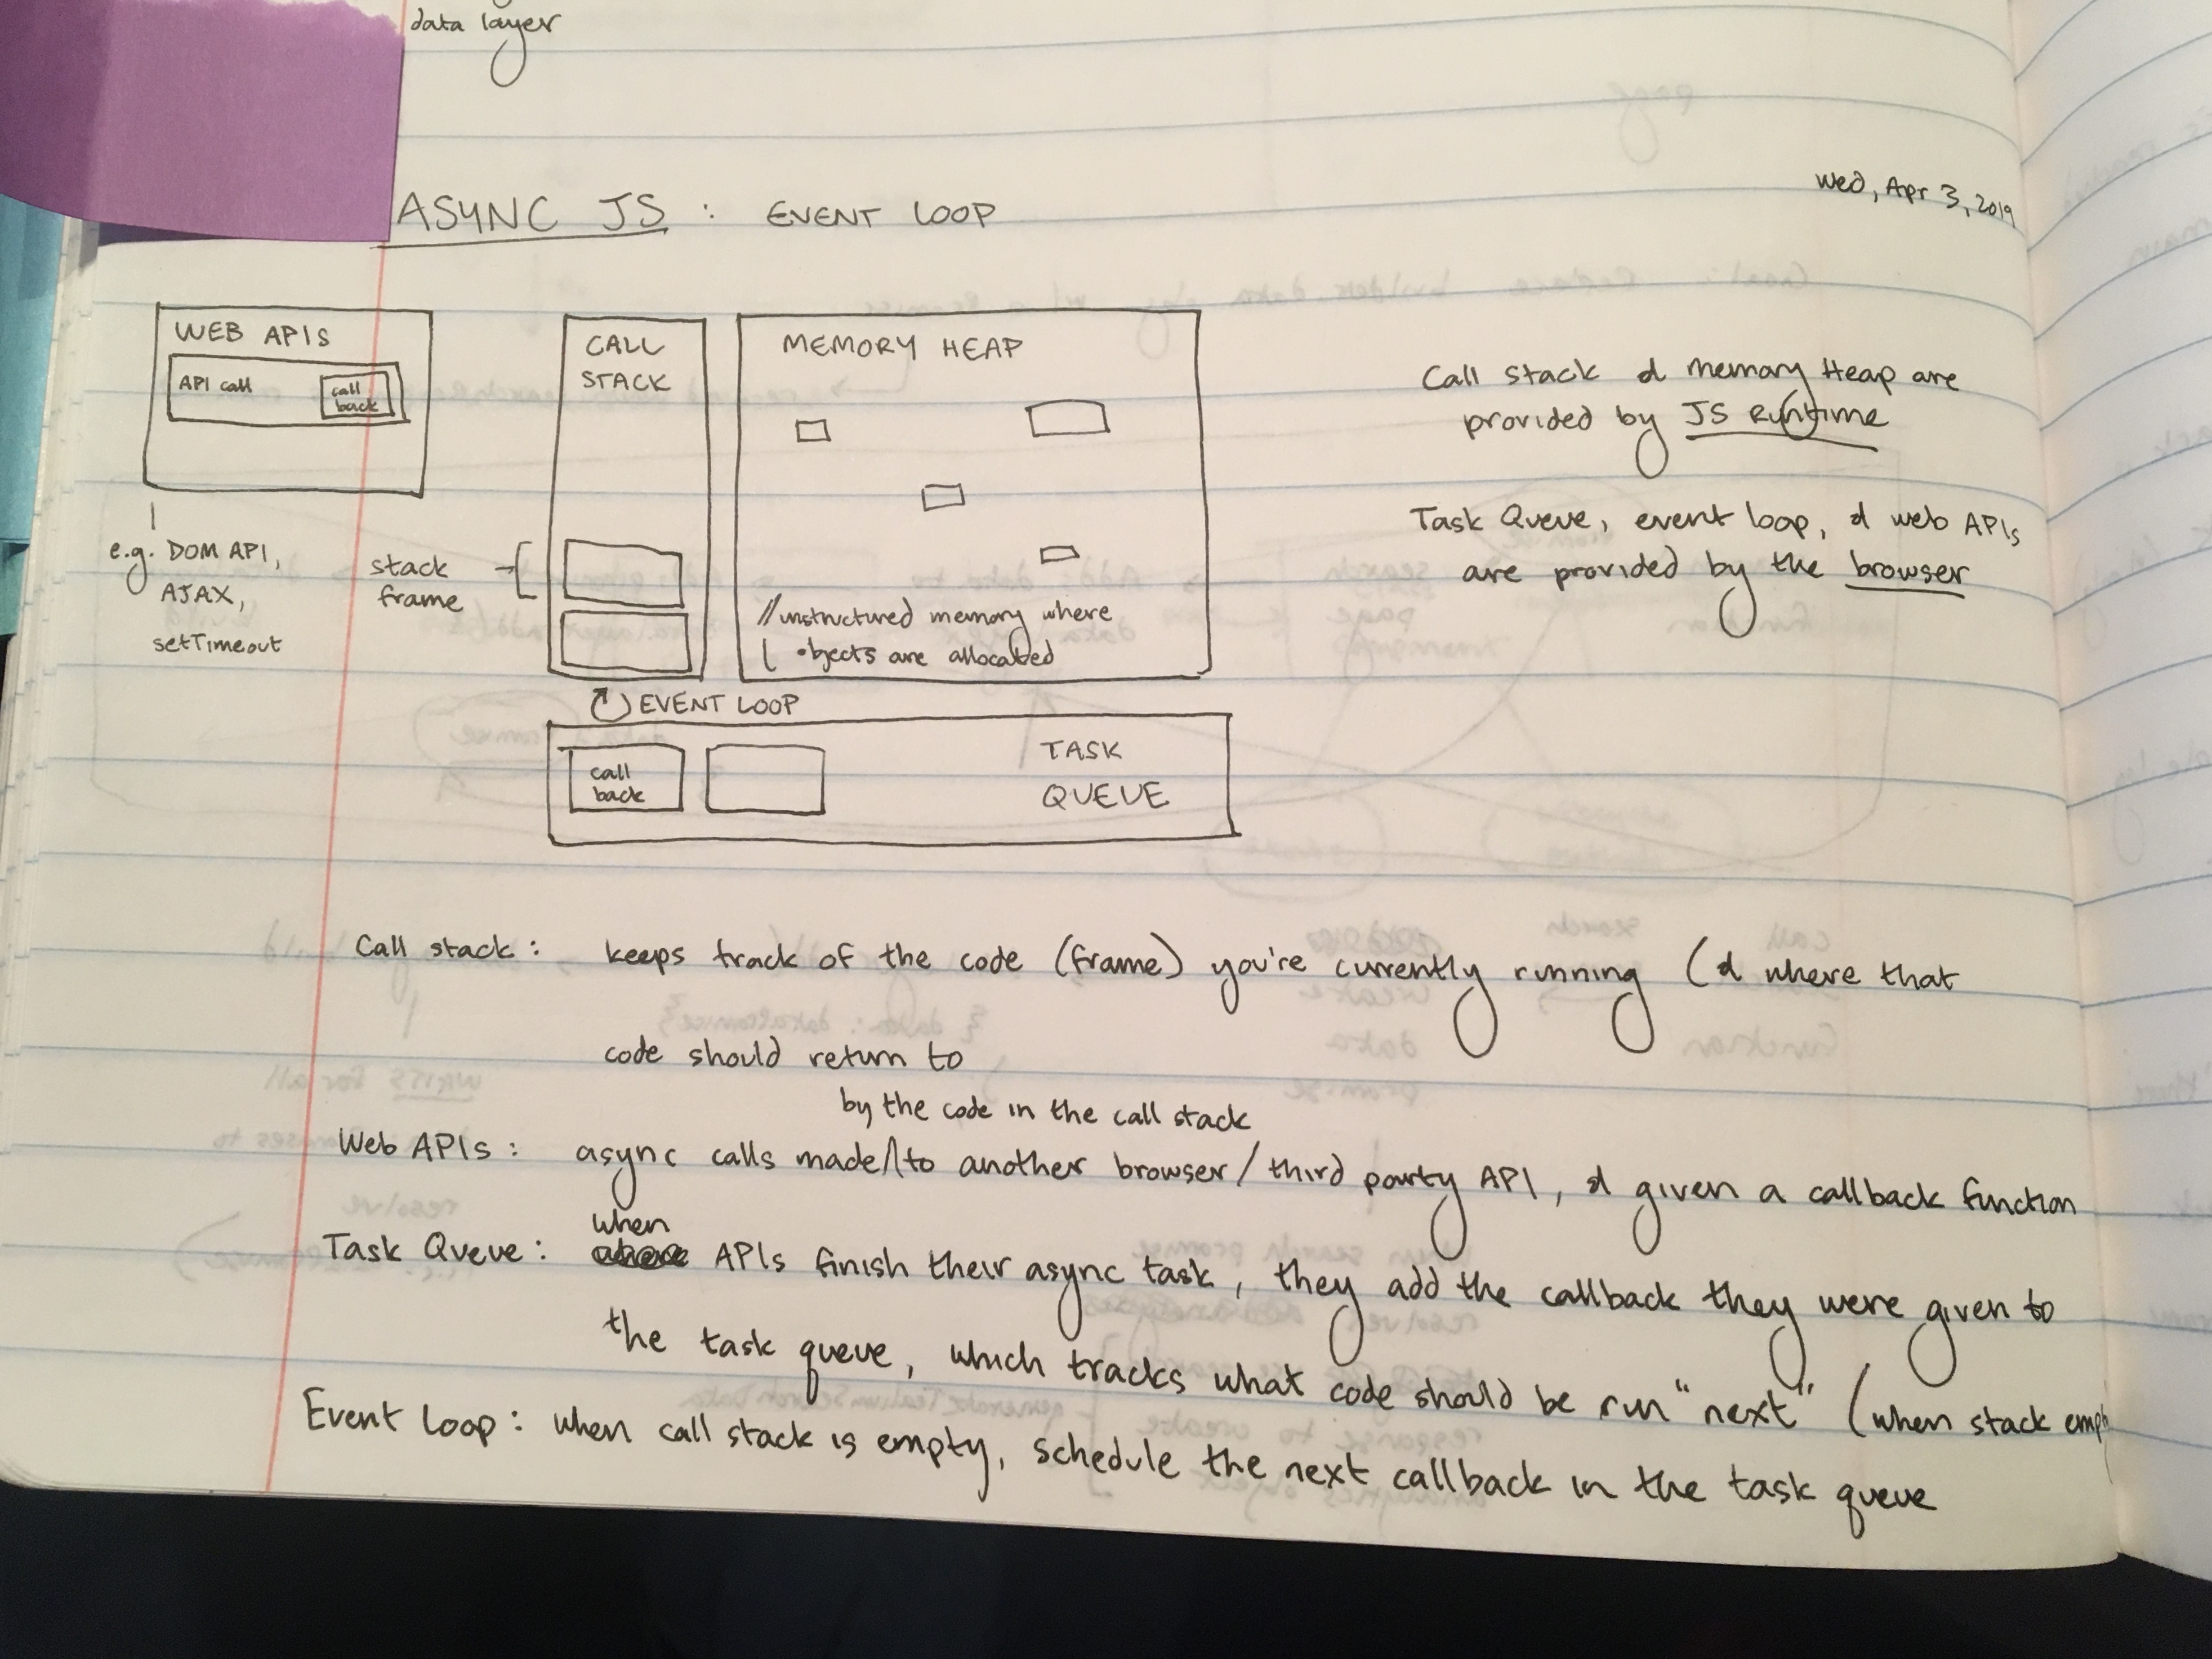 data layer
Wed, Apr 3, 2019
ASYNC JS : EVENT LOOP
WEB APIS
API call
call
back
e.g. DOM API,
AJAX,
setTimeout
CALL
STACK
stack
frame
MEMORY HEAP
//unstructured memory where
objects are allocated
EVENT LOOP
call
back
TASK
QUEUE
Call stack & memory Heap are
provided by JS Runtime
Task Queue, event loop, & web APIs
are provided by the browser
Call stack : keeps track of the code (frame) you're currently running (& where that
code should return to
by the code in the call stack
Web APIs : async calls made/to another browser/third party API, & given a callback function
when
Task Queue : APIs finish their async task, they add the callback they were given to
the task queue, which tracks what code should be run "next" (when stack
Event Loop : when call stack is empty, schedule the next callback in the task queue